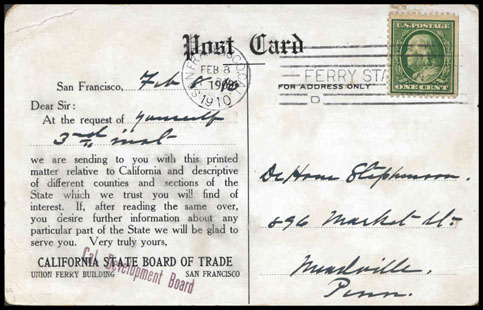 Post Card
U.S. POSTAGE
ONE CENT
FEB 8
1910
FERRY STA
FOR ADDRESS ONLY
San Francisco, Feb 8
Dear Sir:
At the request of yourself
3rd inst
we are sending to you with this printed
matter relative to California and descriptive
of different counties and sections of the
State which we trust you will find of
interest. If, after reading the same over,
you desire further information about any
particular part of the State we will be glad to
serve you. Very truly yours,
CALIFORNIA STATE BOARD OF TRADE
UNION FERRY BUILDING SAN FRANCISCO
Cal. Development Board
Stephenson.
896 Market St.
Meadville.
Penn.